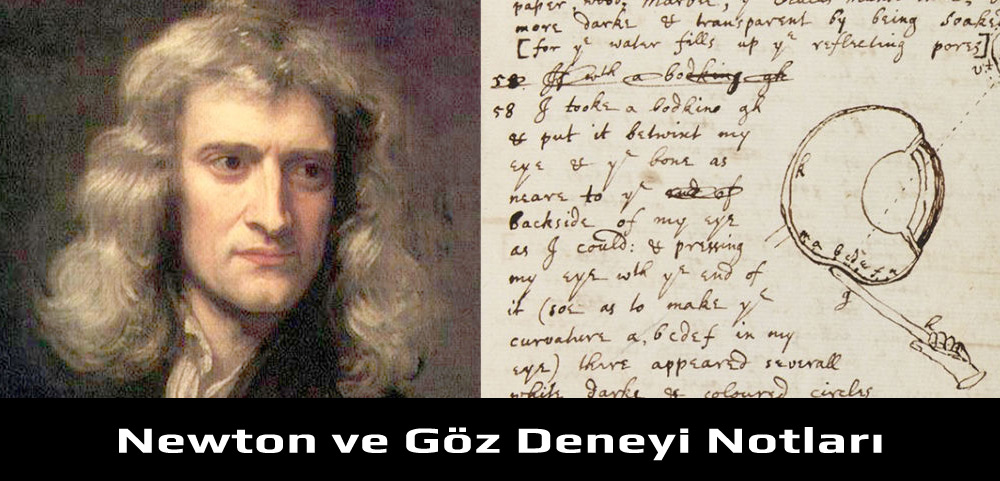 paper, wood, marble, yᵉ
more darke & transparent by being soaked
[for yᵉ water fills up yᵉ reflecting pores]
58 If wth a bodking gh
58 I tooke a bodkine gh
& put it betwixt my
eye & yᵉ bone as
neare to yᵉ end of
backside of my eye
as I could: & pressing
my eye wth yᵉ end of
it (soe as to make yᵉ
curvature a, bcdef in my
eye) there appeared severall
white darke & coloured circles
h
m a b c d e f n
g
h
Newton ve Göz Deneyi Notları